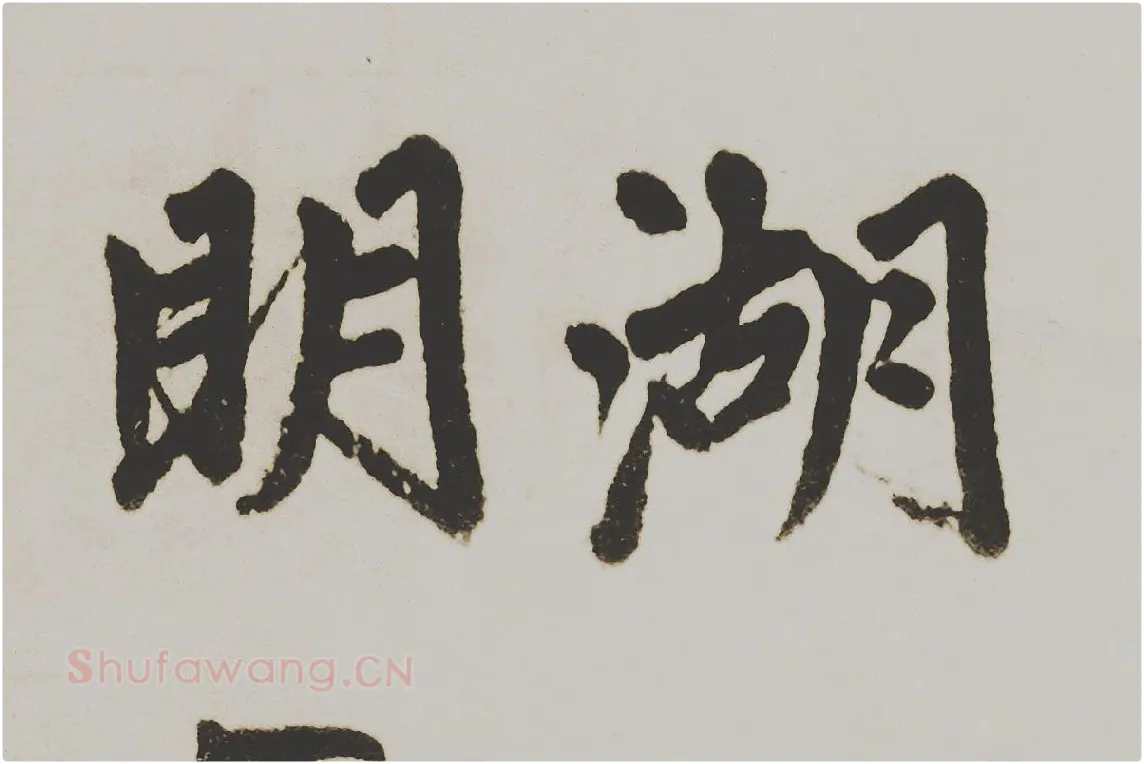 湖
明
Shufawang.CN